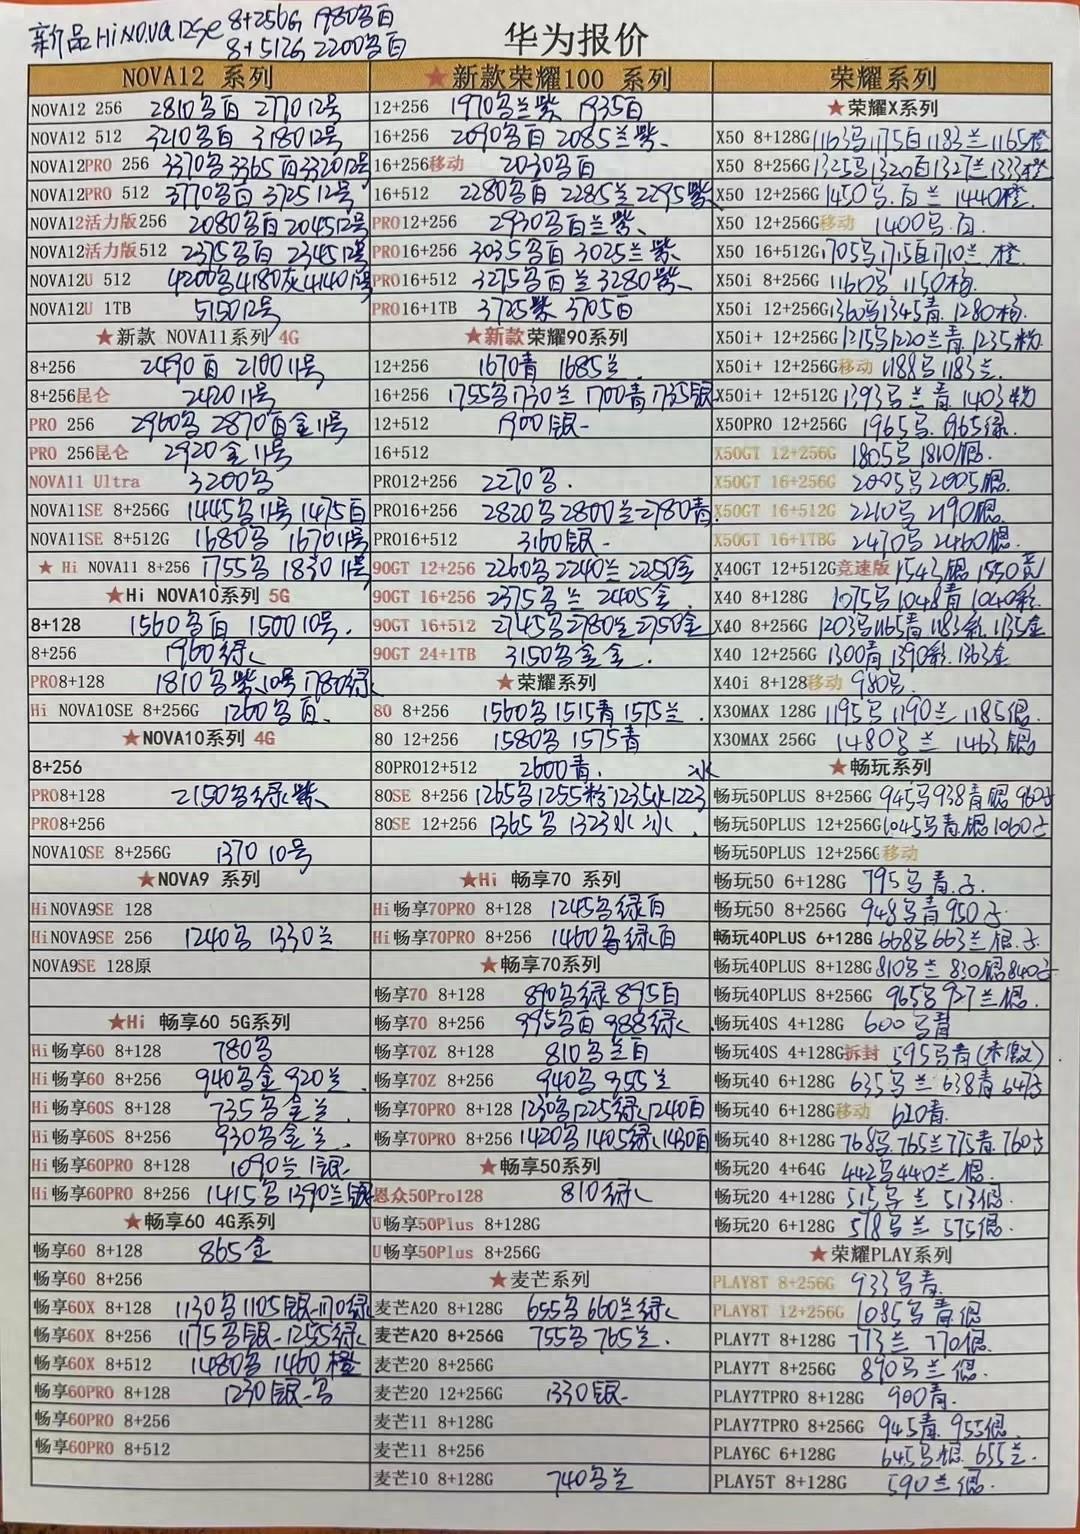 新品HiNOVA12Se 8+256G 1980号白
8+512G 2200号白
华为报价
NOVA12 系列
NOVA12 256 2810号白 2770 12号
NOVA12 512 3210号白 3180 12号
NOVA12PRO 256 3370号3365白3320 12号
NOVA12PRO 512 3770号白 3725 12号
NOVA12活力版256 2080号白2045 12号
NOVA12活力版512 2375号白 2345 12号
NOVA12U 512 4200号4180灰4140 12号
NOVA12U 1TB 5150 12号
★新款 NOVA11系列 4G
8+256 2490白 2100 11号
8+256昆仑 2420 11号
PRO 256 2960号 2870白金11号
PRO 256昆仑 2920金11号
NOVA11 Ultra 3200号
NOVA11SE 8+256G 1445号11号 1475白
NOVA11SE 8+512G 1680号 1670 11号
★ Hi NOVA11 8+256 1755号 1830 11号
★Hi NOVA10系列 5G
8+128 1560号白 1500 10号.
8+256 1960绿
PRO8+128 1810号紫10号1780绿
Hi NOVA10SE 8+256G 1260号白.
★NOVA10系列 4G
8+256
PRO8+128 2150号绿紫
PRO8+256
NOVA10SE 8+256G 1370 10号
★NOVA9 系列
HiNOVA9SE 128
HiNOVA9SE 256 1240号 1330兰
NOVA9SE 128原
★Hi 畅享60 5G系列
Hi畅享60 8+128 780号
Hi畅享60 8+256 940号金 920兰
Hi畅享60S 8+128 735号金兰
Hi畅享60S 8+256 930号金兰
Hi畅享60PRO 8+128 1090兰 银
Hi畅享60PRO 8+256 1415号1390兰银
★畅享60 4G系列
畅享60 8+128 865金
畅享60 8+256
畅享60X 8+128 1130号1105银1170绿
畅享60X 8+256 1175号银 1255绿
畅享60X 8+512 1480号 1460橙
畅享60PRO 8+128 1230银号
畅享60PRO 8+256
畅享60PRO 8+512
★新款荣耀100 系列
12+256 1970号兰紫 1935白
16+256 2090号白 2085兰紫
16+256移动 2030号白
16+512 2280号白 2285兰2295紫
PRO12+256 2930号白兰紫
PRO16+256 3035号白 3025兰紫
PRO16+512 3275号白兰3280紫
PRO16+1TB 3725紫 3705白
★新款荣耀90系列
12+256 1670青 1685兰
16+256 1755号1730兰 1700青1735银
12+512 1900银
16+512
PRO12+256 2270号.
PRO16+256 2820号2800兰2780青
PRO16+512 3160银
90GT 12+256 2260号2240兰2250金
90GT 16+256 2375号兰 2405金.
90GT 16+512 2745号2780兰2750金
90GT 24+1TB 3150号金金.
★荣耀系列
80 8+256 1560号1515青1575兰.
80 12+256 1580号 1575青
80PRO12+512 2600青. 冰
80SE 8+256 1265号1255粉1235冰1223
80SE 12+256 1365号 1323冰冰.
★Hi 畅享70 系列
Hi畅享70PRO 8+128 1245号绿白
Hi畅享70PRO 8+256 1460号绿白
★畅享70系列
畅享70 8+128 890号绿895白
畅享70 8+256 995号白988绿
畅享70Z 8+128 810号兰白
畅享70Z 8+256 940号 955兰
畅享70PRO 8+128 1230号1225绿1240白
畅享70PRO 8+256 1420号1405绿1430白
★畅享50系列
恩众50Pro128 810绿
U畅享50Plus 8+128G
U畅享50Plus 8+256G
★麦芒系列
麦芒A20 8+128G 655号660兰绿
麦芒A20 8+256G 755号765兰.
麦芒20 8+256G
麦芒20 12+256G 1330银
麦芒11 8+128G
麦芒11 8+256
麦芒10 8+128G 740号兰
荣耀系列
★荣耀X系列
X50 8+128G 1163号1175白1183兰1165橙
X50 8+256G 1325号1320白1327兰1333橙
X50 12+256G 1450号.白兰 1440橙.
X50 12+256G移动 1400号.白
X50 16+512G 1705号1715白1710兰.橙
X50i 8+256G 1160号 1150粉.
X50i 12+256G 1360号1345青.1280粉
X50i+ 12+256G 1215号1220兰青.1235粉
X50i+ 12+256G移动 1188号1183兰.
X50i+ 12+512G 1393号兰青 1403粉
X50PRO 12+256G 1965号.1965绿.
X50GT 12+256G 1805号 1810银.
X50GT 16+256G 2005号2005银.
X50GT 16+512G 2210号 2190银.
X50GT 16+1TBG 2470号 2460银.
X40GT 12+512G竞速版1543银1550黑
X40 8+128G 1075号1048青1040彩.
X40 8+256G 1203号1165青1183彩.1135金
X40 12+256G 1300青1390彩.1363金
X40i 8+128移动 980号.
X30MAX 128G 1195号1190兰 1185银.
X30MAX 256G 1480号兰 1463银
★畅玩系列
畅玩50PLUS 8+256G 945号938青银 960子
畅玩50PLUS 12+256G 1045号青.银1060子
畅玩50PLUS 12+256G移动
畅玩50 6+128G 795号青.子.
畅玩50 8+256G 948号青950子
畅玩40PLUS 6+128G 668号663兰银.子
畅玩40PLUS 8+128G 810号兰830银840子
畅玩40PLUS 8+256G 965号927兰银.
畅玩40S 4+128G 600号青
畅玩40S 4+128G拆封 595号青(未激)
畅玩40 6+128G 635号兰638青647子
畅玩40 6+128G移动 620青.
畅玩40 8+128G 768号.765兰775青.760子
畅玩20 4+64G 442号440兰银.
畅玩20 4+128G 515号兰 513银.
畅玩20 6+128G 578号兰 575银.
★荣耀PLAY系列
PLAY8T 8+256G 933号青.
PLAY8T 12+256G 1085号青银
PLAY7T 8+128G 773兰 770银.
PLAY7T 8+256G 890号兰银.
PLAY7TPRO 8+128G 900青.
PLAY7TPRO 8+256G 945青.955银.
PLAY6C 6+128G 645号银.655兰.
PLAY5T 8+128G 590兰银.